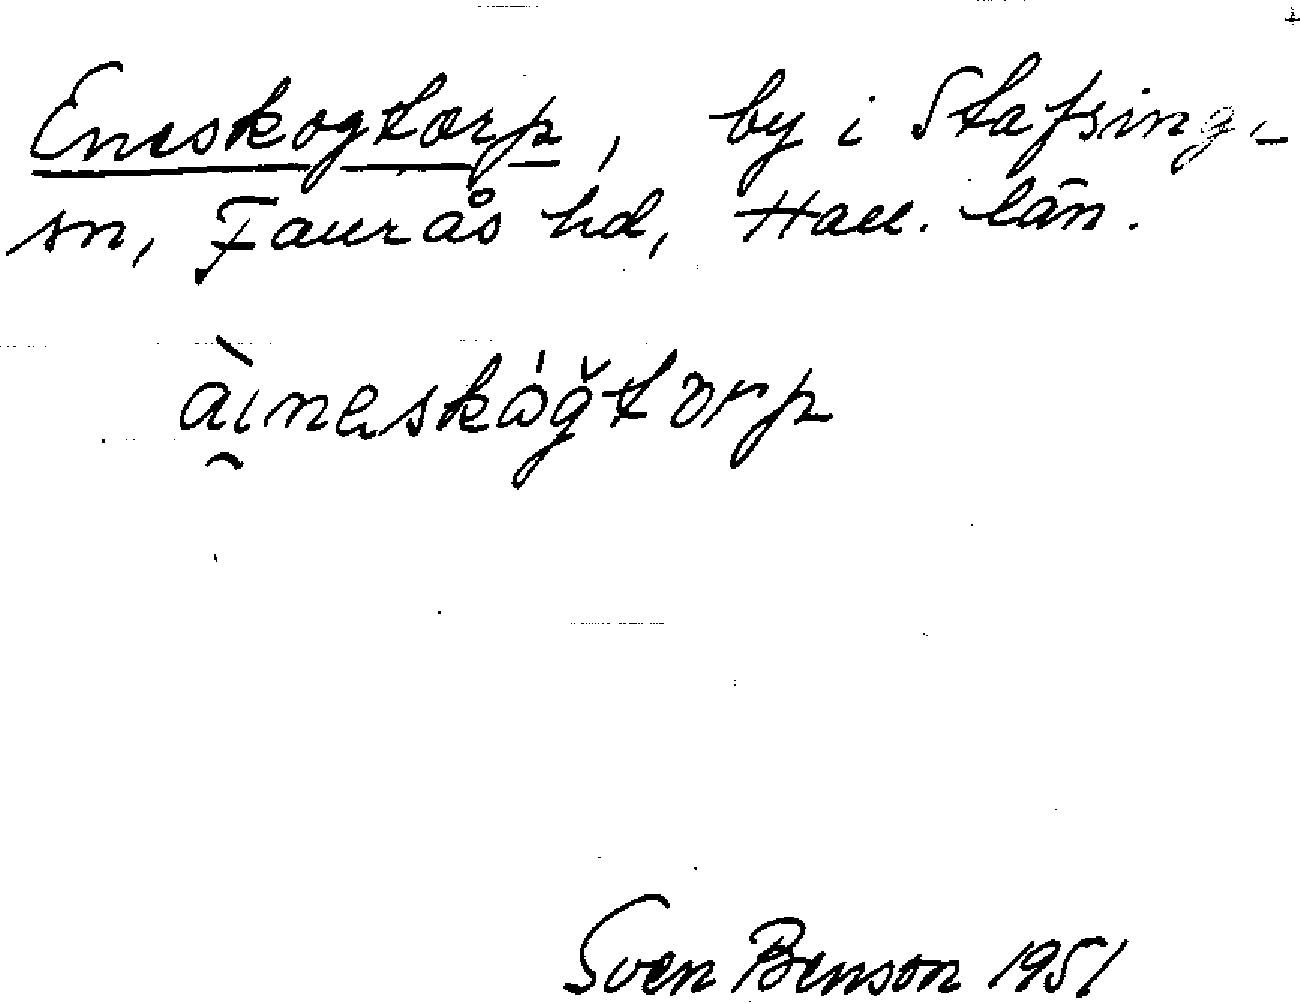 Eneskogtorp, by i Stafsinge-
sn, Faurås hd, Hall. län.
àineskóğtorp
Sven Benson 1951